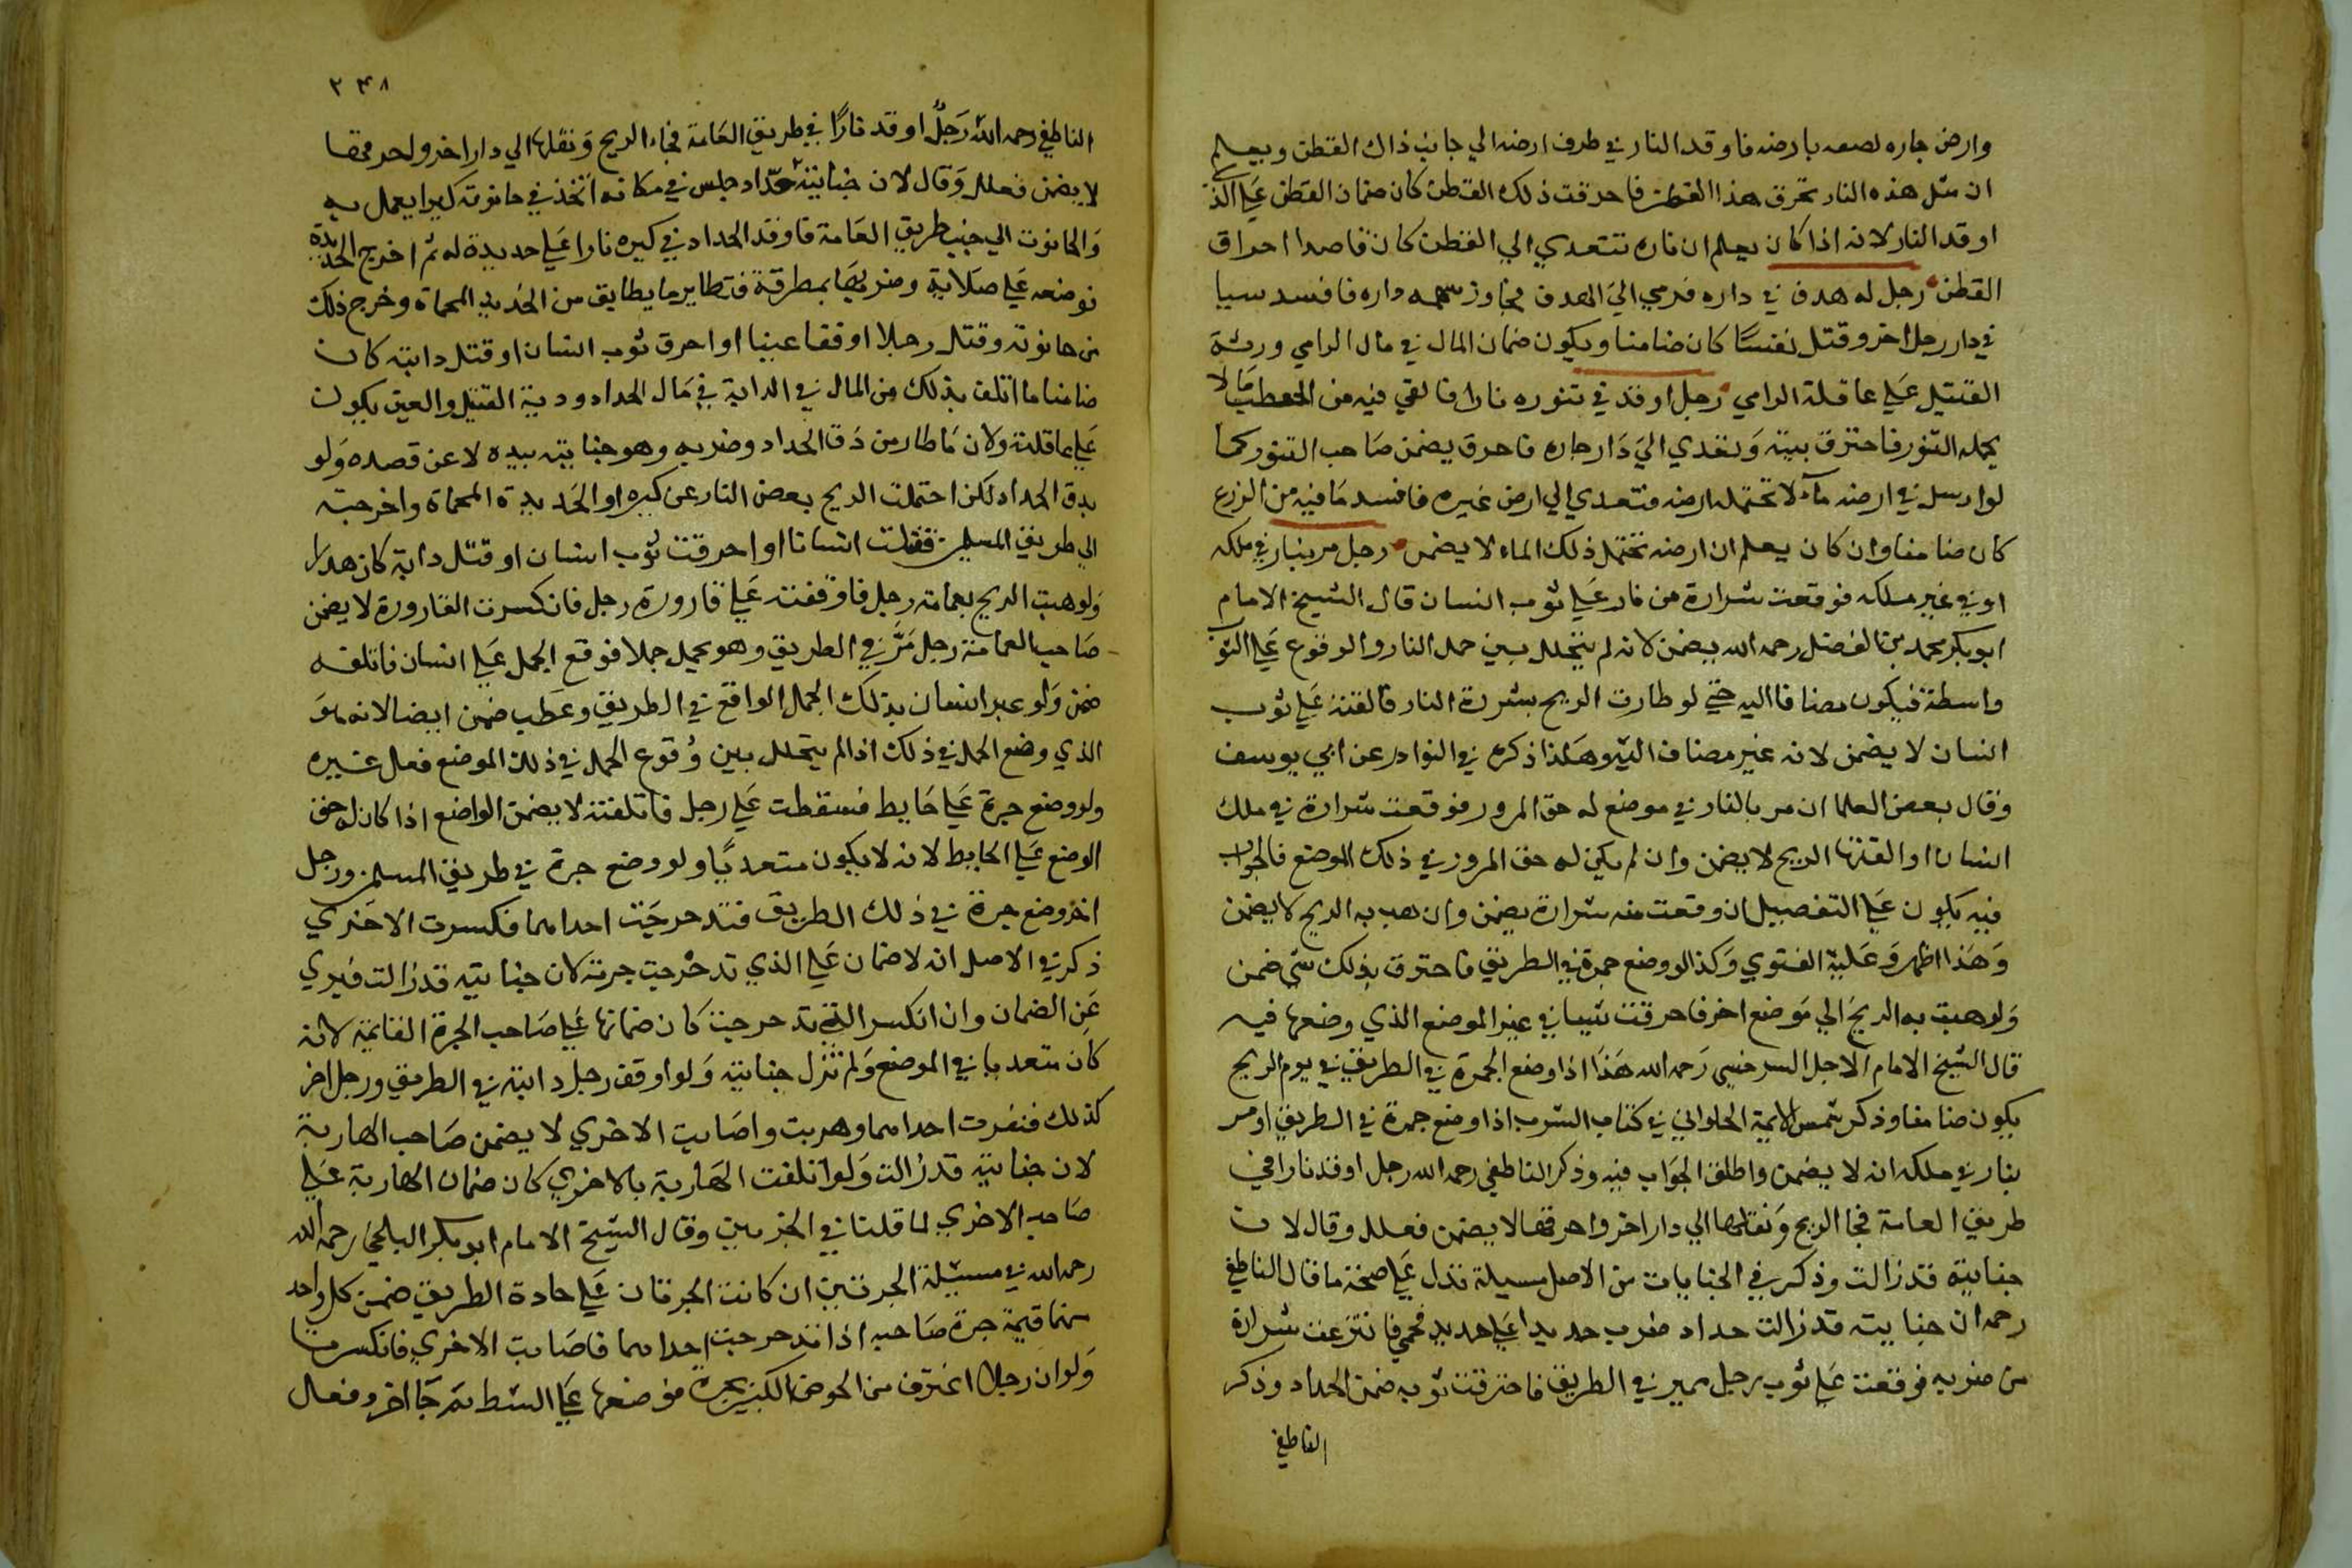 وارض جاره لصقه بارضه فاوقد النار في طرف ارضه الي جانب ذاك القطن ويعلم
ان مثل هذه النار تحرق هذا القطن فاحرقت ذلك القطن كان ضمان القطن علي الذ
اوقد النار لانه اذا كان يعلم ان ناره تتعدي الي القطن كان قاصدا احراق
القطن رجل له هدف في داره فرمي الي الهدف فجاوز سهمه داره فافسد سيا
في دار رجل اخر وقتل نفسًا كان ضامنا ويكون ضمان المال في مال الرامي ودية
القتيل علي عاقلة الرامي رجل اوقد في تنوره نارا فالقي فيه من الحطب مالا
يحمله التنور فاحترق بيته وتعدي الي دار جاره فاحرق يضمن صاحب التنور كما
لو ارسل في ارضه مآء لا تحتمله ارضه فتعدي الي ارض غيره فافسد ما فيه من الزرع
كان ضامنا وان كان يعلم ان ارضه تحتمل ذلك الماء لا يضمن رجل مر بنار في ملكه
او في غير ملكه فوقعت شرارة من نار علي ثوب انسان قال الشيخ الامام
ابو بكر محمد بن الفضل رحمه الله يضمن لانه لم يتخلل بين حمل النار والوقوع علي الثو
واسطة فيكون مضافا اليه حتي لو طارت الريح بشررة النار فالقته علي ثوب
انسان لا يضمن لانه غير مضاف اليه وهكذا ذكره في النوادر عن ابي يوسف
وقال بعض العلما ان مر بالنار في موضع له حق المرور فوقعت شرارة في ملك
انسان او القتها الريح لا يضمن وان لم يكن له حق المرور في ذلك الموضع فالجواب
فيه يكون علي التفصيل ان وقعت منه شرارة يضمن وان هب به الريح لا يضمن
وهذا اظهر وعليه الفتوي وكذا لو وضع جمرة في الطريق فاحترق بذلك شي ضمن
ولو هبت به الريح الي موضع اخر فاحرقت شيا في غير الموضع الذي وضعها فيه
قال الشيخ الامام الاجل السرخسي رحمه الله هذا اذا وضع الجمرة في الطريق في يوم الريح
يكون ضامنا وذكر شمس الايمة الحلواني في كتاب الشرب اذا وضع جمرة في الطريق او مر
بنار في ملكه انه لا يضمن واطلق الجواب فيه وذكر الناطفي رحمه الله رجل اوقد نارا في
طريق العامة فجا الريح ونقلها الي دار اخر واحرقها لا يضمن فعلل وقال لان
جنايته قد زالت وذكر في الجنايات من الاصل مسيلة تدل علي صحة ما قال الناطفي
رحمه ان جنايته قد زالت حداد ضرب حديدا علي حديد فحمي فانتزعت شرارة
من ضربه فوقعت علي ثوب رجل يمر في الطريق فاحترقت ثوبه ضمن الحداد وذكر
الناطفي
٢٤٨
الناطفي رحمه الله رجلٌ اوقد نارًا في طريق العامة فجاء الريح ونقلها الي دار اخر واحرقها
لا يضمن فعلل وقال لان جنايته حداد جلس في مكانه اتخذ في حانوته كيرا يعمل به
والحانوت الي جنب طريق العامة فاوقد الحداد في كيره نارا علي حديدة له ثم اخرج الحديدة
فوضعه علي صلاية وضربها بمطرقة فتطاير ما يطاير من الحديد المحماة وخرج ذلك
من حانوته وقتل رجلا او فقا عينا او احرق ثوب انسان او قتل دابته كان
ضامنا ما اتلف بذلك من المال في الدابة في مال الحداد ودية القتيل والعين يكون
علي عاقلته ولان ما طار من دق الحداد وضربه وهو جنايته بيده لا عن قصده ولو
يدق الحداد لكن احتملت الريح بعض النار عن كيره او الحديدة المحماة واخرجته
الي طريق المسلمين فقتلت انسانا او احرقت ثوب انسان او قتل دابة كان هدرا
ولو هبت الريح بعمامة رجل فاوقفته علي قارورة رجل فانكسرت القارورة لا يضمن
صاحب العمامة رجل مر في الطريق وهو يحمل حملا فوقع الحمل علي انسان فاتلفه
ضمن ولو عبر انسان بذلك الحمل الواقع في الطريق وعطب ضمن ايضا لانه هو
الذي وضع الحمل في ذلك اذا لم يتخلل بين وقوع الحمل في ذلك الموضع فعل غيره
ولو وضع جرة علي حايط فسقطت علي رجل فاتلفته لا يضمن الواضع اذا كان له حق
الوضع علي الحايط لانه لا يكون متعديًا ولو وضع جرة في طريق المسلمين ورجل
اخر وضع جرة في ذلك الطريق فتدحرجت احداهما فكسرت الاخري
ذكر في الاصل انه لا ضمان علي الذي تدحرجت جرته لان جنايته قد زالت فيبري
عن الضمان وان انكسر التي تدحرجت كان ضمانها علي صاحب الجرة القايمة لانه
كان متعديا في الموضع ولم تزل جنايته ولو اوقف رجل دابته في الطريق ورجل اخر
كذلك فنفرت احداهما وهربت واصابت الاخري لا يضمن صاحب الهاربة
لان جنايته قد زالت ولو اتلفت الهاربة بالاخري كان ضمان الهاربة علي
صاحب الاخري لما قلنا في الجرتين وقال الشيخ الامام ابو بكر البلخي رحمه الله
رحمه الله في مسيلة الجرتين ان كانت الجرتان علي جادة الطريق ضمن كل واحد
منهما قيمة جرة صاحبه اذا تدحرجت احداهما فاصابت الاخري فانكسرتا
ولو ان رجلا اغترف من الحوض الكبير بجرة فوضعها علي الشط ثم جا اخر وفعل